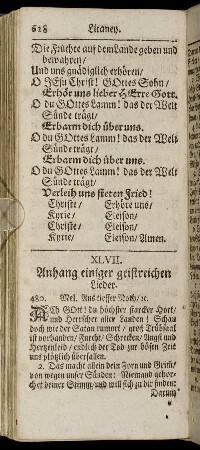 628 Litaney.
Die Früchte auf dem Lande geben und
bewahren/
Und uns gnädiglich erhören/
O JEsu Christ! GOttes Sohn/
Erhör uns lieber HErre Gott.
O du GOttes Lamm! das der Welt
Sünde trägt/
Erbarm dich über uns.
O du GOttes Lamm! das der Welt
Sünde trägt/
Erbarm dich über uns.
O du GOttes Lamm! das der Welt
Sünde trägt/
Verleih uns steten Fried!
Christe/ Erhöre uns/
Kyrie/ Eleison/
Christe/ Eleison/
Kyrie/ Eleison/ Amen.
XLVII.
Anhang einiger geistreichen
Lieder.
480. Mel. Aus tieffer Noth/ ꝛc.
ACh GOtt! du höchster starcker Hort/
und Herrscher aller Landen! Schau
doch wie der Satan rumort/ groß Trübsaal
ist vorhanden/ Furcht/ Schrecken/ Angst und
Hertzenleid/ endlich der Tod zur bösen Zeit
uns plötzlich überfallen.
2. Das macht allein dein Zorn und Grim̃/
von wegen unser Sünden: Niemand gehor-
chet deiner Stimm/ und will sich zu dir finden:
Darum